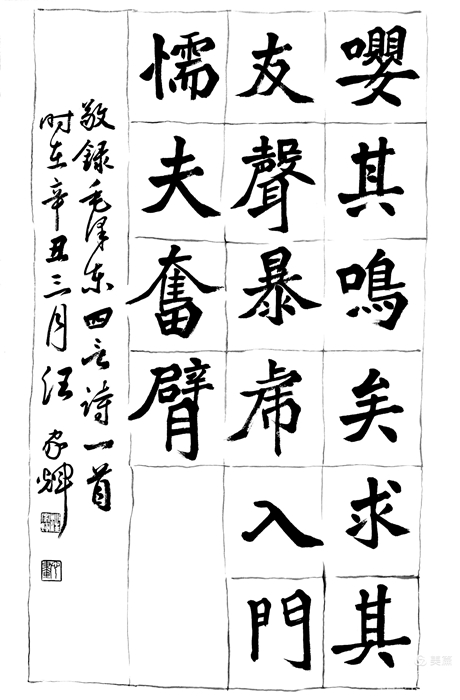 嚶其鳴矣求其
友聲暴虎入門
懦夫奮臂
敬錄毛泽东四言诗一首
时在辛丑三月汪家輝
美篇